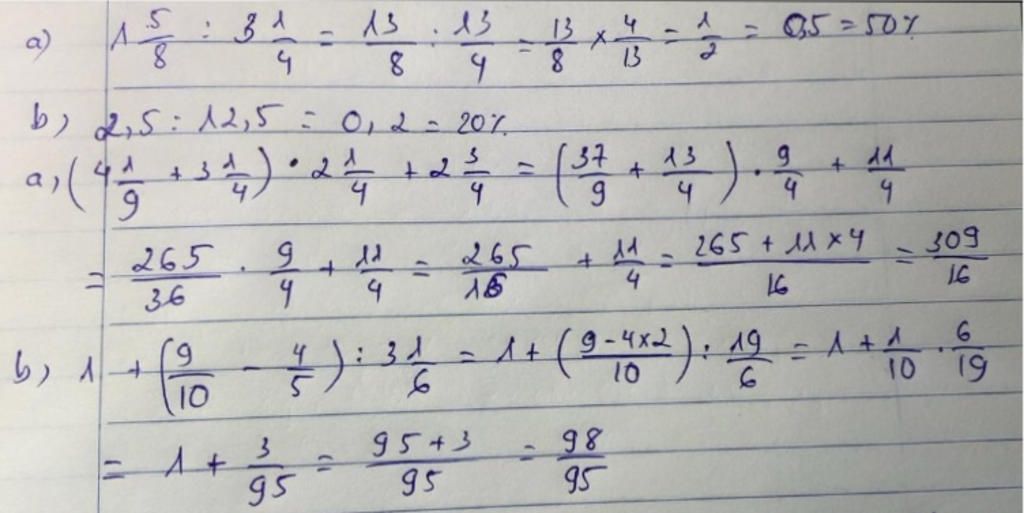 a) 1 5/8 : 3 1/4 = 13/8 : 13/4 = 13/8 × 4/13 = 1/2 = 0,5 = 50%
b) 2,5 : 12,5 = 0,2 = 20%
a, (4 1/9 + 3 1/4) · 2 1/4 + 2 3/4 = (37/9 + 13/4) · 9/4 + 11/4
= 265/36 · 9/4 + 11/4 = 265/16 + 11/4 = (265 + 11 × 4)/16 = 309/16
b, 1 + (9/10 - 4/5) : 3 1/6 = 1 + ((9 - 4×2)/10) : 19/6 = 1 + 1/10 · 6/19
= 1 + 3/95 = (95 + 3)/95 = 98/95